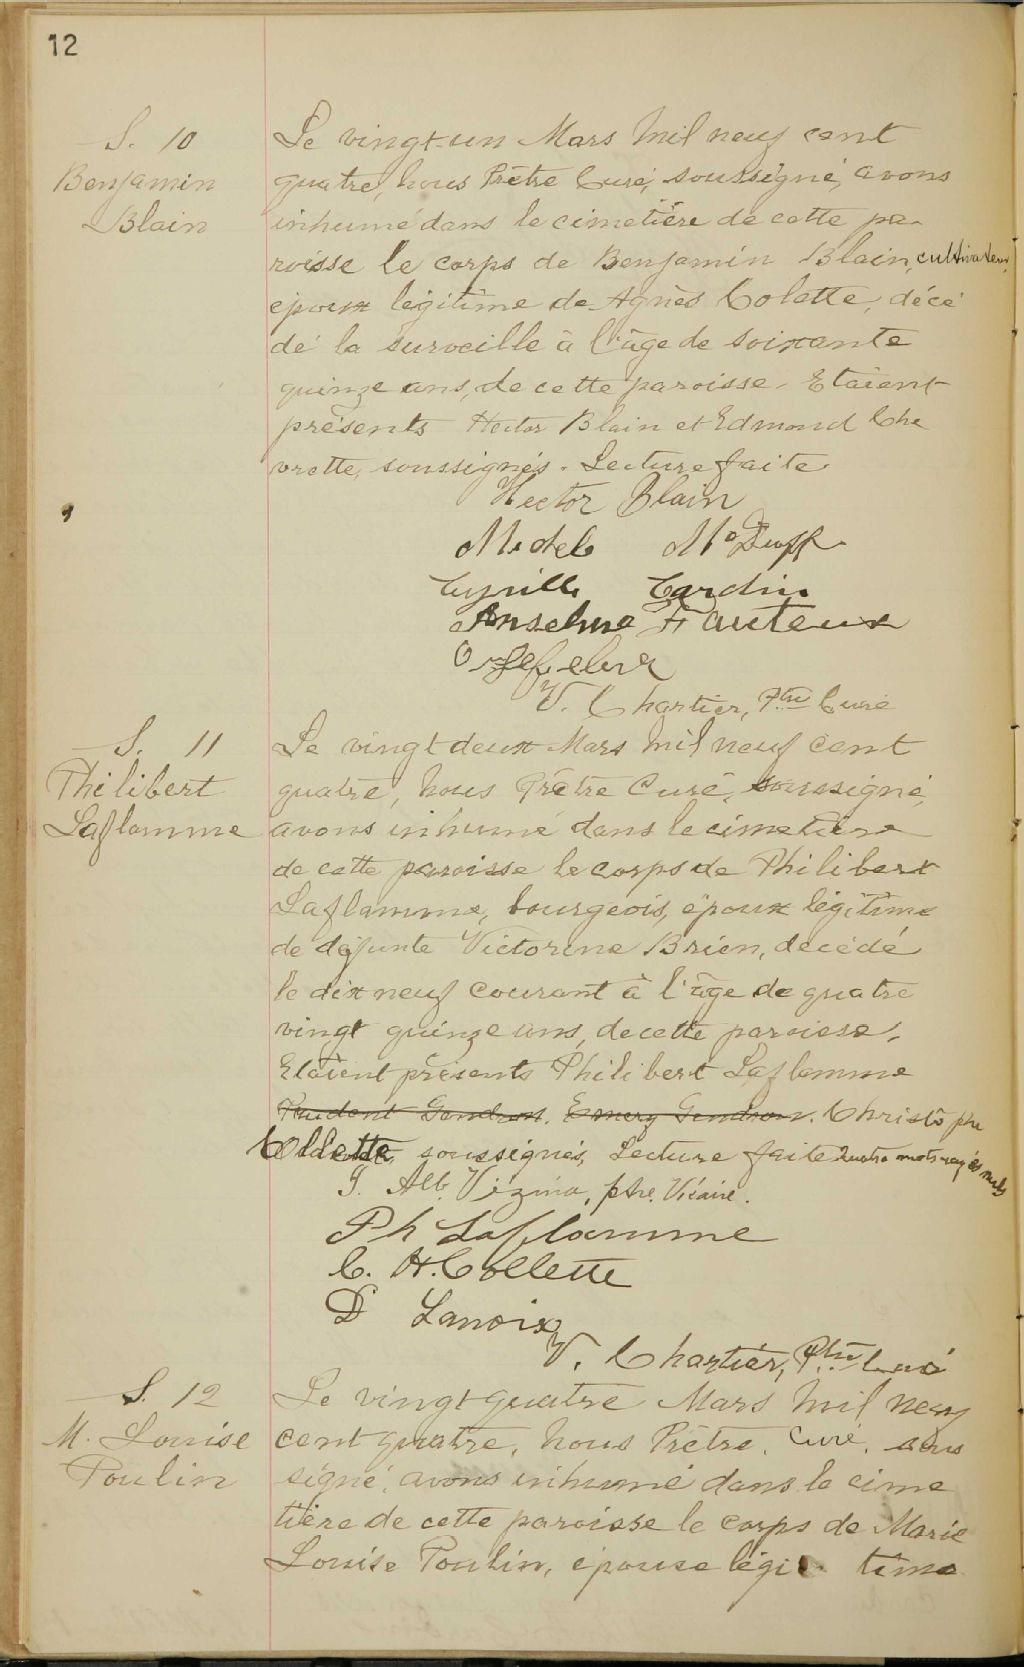 12
S. 10
Benjamin
Blain
Le vingt-un Mars mil neuf cent
quatre, nous Prêtre Curé, soussigné, avons
inhumé dans le cimetière de cette pa-
roisse le corps de Benjamin Blain, cultivateur,
époux légitime de Agnès Colette, décé
dé la surveille à l'âge de soixante
quinze ans, de cette paroisse. Etaient
présents Hector Blain et Edmond Che
vrette, soussignés. Lecture faite.
Hector Blain
Medel McDuff
Cyrille Cardin
Anselme Fauteux
O Lefebvre
V. Chartier, Ptre Curé
S. 11
Philibert
Laflamme
Le vingt deux Mars mil neuf cent
quatre, nous Prêtre Curé, soussigné,
avons inhumé dans le cimetière
de cette paroisse le corps de Philibert
Laflamme, bourgeois, époux légitime
de défunte Victorine Brien, décédé
le dix neuf courant à l'âge de quatre
vingt quinze ans, de cette paroisse.
Etaient présents Philibert Laflamme
Prudent Gendron. Emery Gendron. Christophe
Collette, soussignés, Lecture faite quatre mots rayés nuls
J. Alb. Vézina, ptre. Vicaire.
Ph Laflamme
C. H. Collette
D Lanoix
V. Chartier, Ptre Curé
S. 12
M. Louise
Poulin
Le vingt quatre Mars mil neuf
cent quatre, nous Prêtre, Curé, sous
signé, avons inhumé dans le cime
tière de cette paroisse le corps de Marie
Louise Poulin, épouse légi time